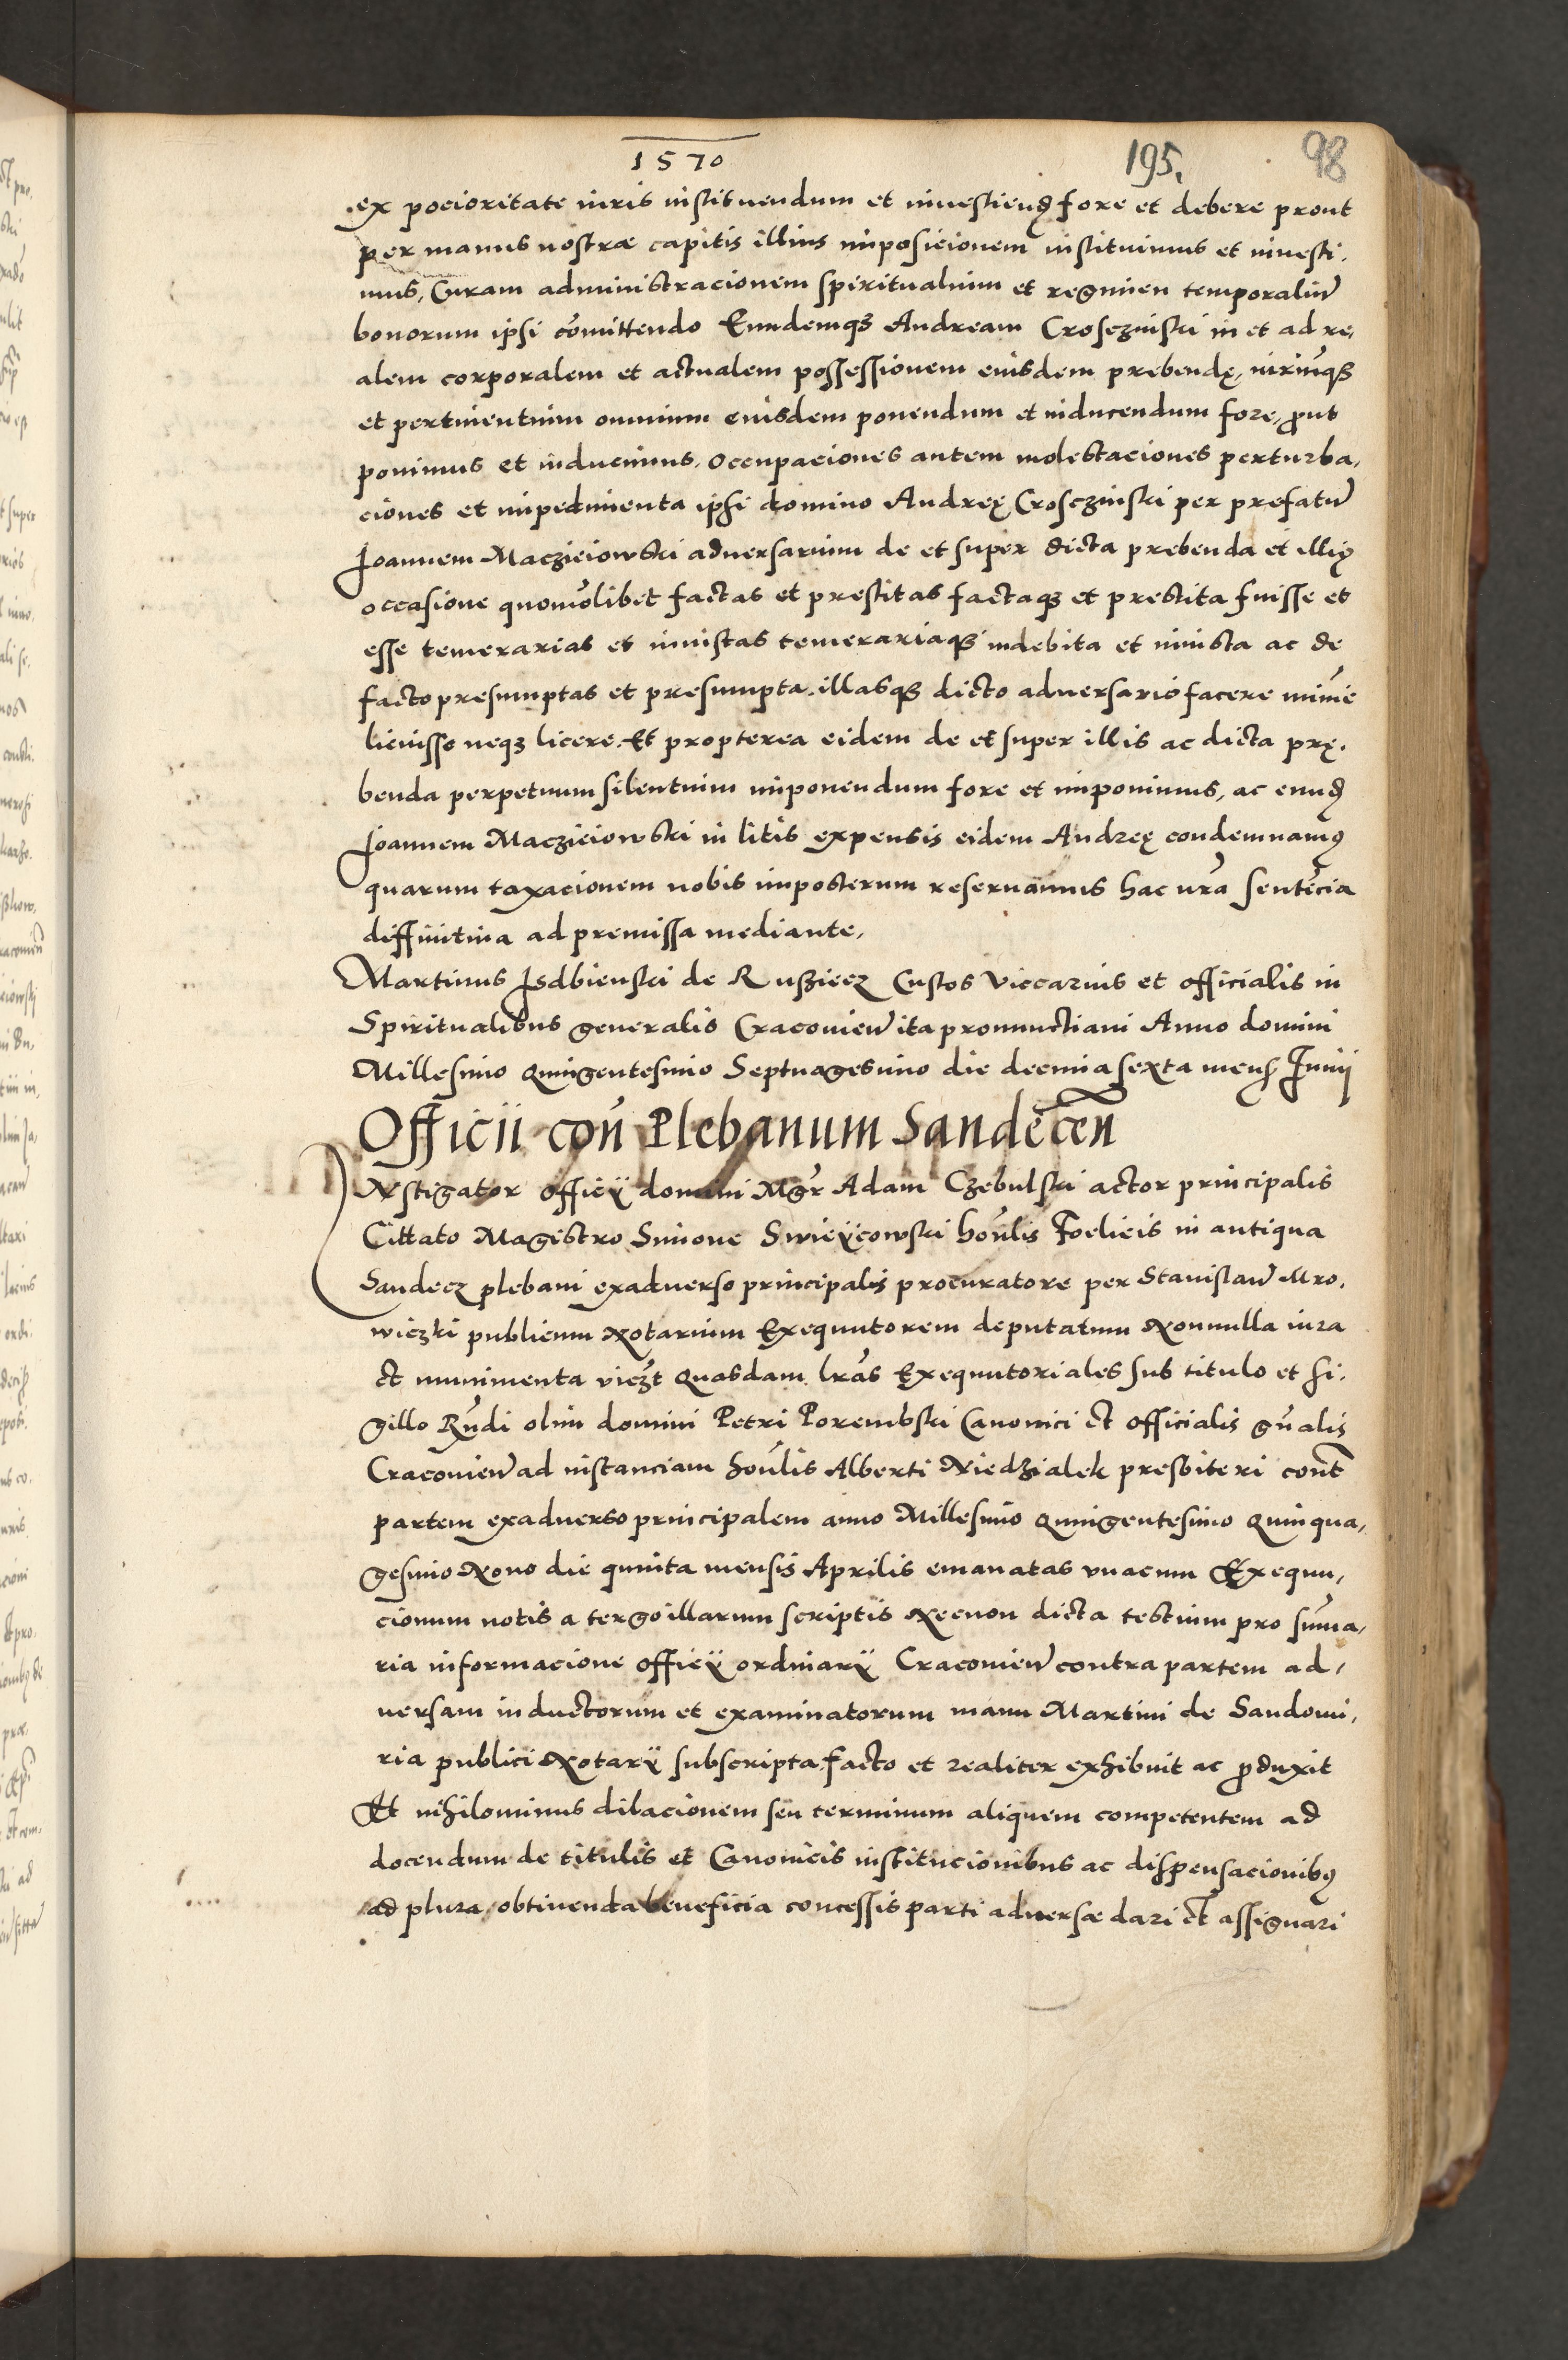 1570
195.
98
ex pocioritate iuris instituendum et inuestiend fore et debere prout
per manus nostræ capitis illius imposicionem instituimus et inuesti,
mus, Curam administracionem spiritualium et regimen temporaliũ
bonorum ipsi cõmittendo Eundemqʒ Andream Crosczinski in et ad re,
alem corporalem et actualem possessionem eiusdem prebendę, iuriũqʒ
et pertinentium omnium eiusdem ponendum et inducendum fore, ꝓut
ponimus et inducimus. Occupaciones autem molestaciones perturba,
ciones et impedimenta ipsi domino Andreę Crosczinski per prefatũ
Joannem Maczieiowski aduersarium de et super dicta prebenda et illiꝰ
occasione quomõlibet factas et prestitas factaqʒ et prestita fuisse et
esse temerarias et iniustas temerariaqʒ indebita et iniusta ac de
facto presumptas et presumpta. illasqʒ dicto aduersario facere minĩe
licuisse neqʒ licere. Et propterea eidem de et super illis ac dicta prę,
benda perpetuum silentium imponendum fore et imponimus, ac eund
Joannem Maczieiowski in litis expensis eidem Andreę condemnamꝰ
quarum taxacionem nobis imposterum reseruamus hac nrã sentẽcia
diffinitiua ad premissa mediante,
Martinus Isdbienski de Rusziecz Custos Viccarius et officialis in
Spiritualibus generalis Cracouieñ ita pronunctiaui Anno domini
Millesimo quingentesimo Septuagesimo die decimasexta mens Junij
Officii coñ Plebanum Sandeceñ
INstigator officÿ domini Mgr̃ Adam Czebulski actor principalis
Cittato Magistro Simone Swieÿcowski hoñlis Foelicis in antiqua
Sandecz plebani exaduerso principalis procuratore per Stanislaũ Mro,
wiczki publicum Notarium Exequutorem deputatum Nonnulla iura
et munimenta viczt quasdam lrãs Exequutoriales sub titulo et si,
gillo Rñdi olim domini Petri Porembski Canonici et officialis gñalis
Cracouieñ ad instanciam hoñlis Alberti Niedzialek presbiteri cont̃
partem exaduerso principalem anno Millesimo quingentesimo quinqua,
gesimo Nono die quinta mensis Aprilis emanatas vnacum Exequu,
cionum notis a tergo illarum scriptis Necnon dicta testium pro sum̃a,
ria informacione officÿ ordinarÿ Cracouieñ contra partem ad,
uersam inductorum et examinatorum manu Martini de Sandomi,
ria publici Notarÿ subscripta facto et realiter exhibuit ac ꝓduxit
Et nihilominus dilacionem seu terminum aliquem competentem ad
docendum de titulis et Canonicis institucionibus ac dispensacionibꝰ
ad plura obtinenda beneficia concessis parti aduersæ dari et assignari